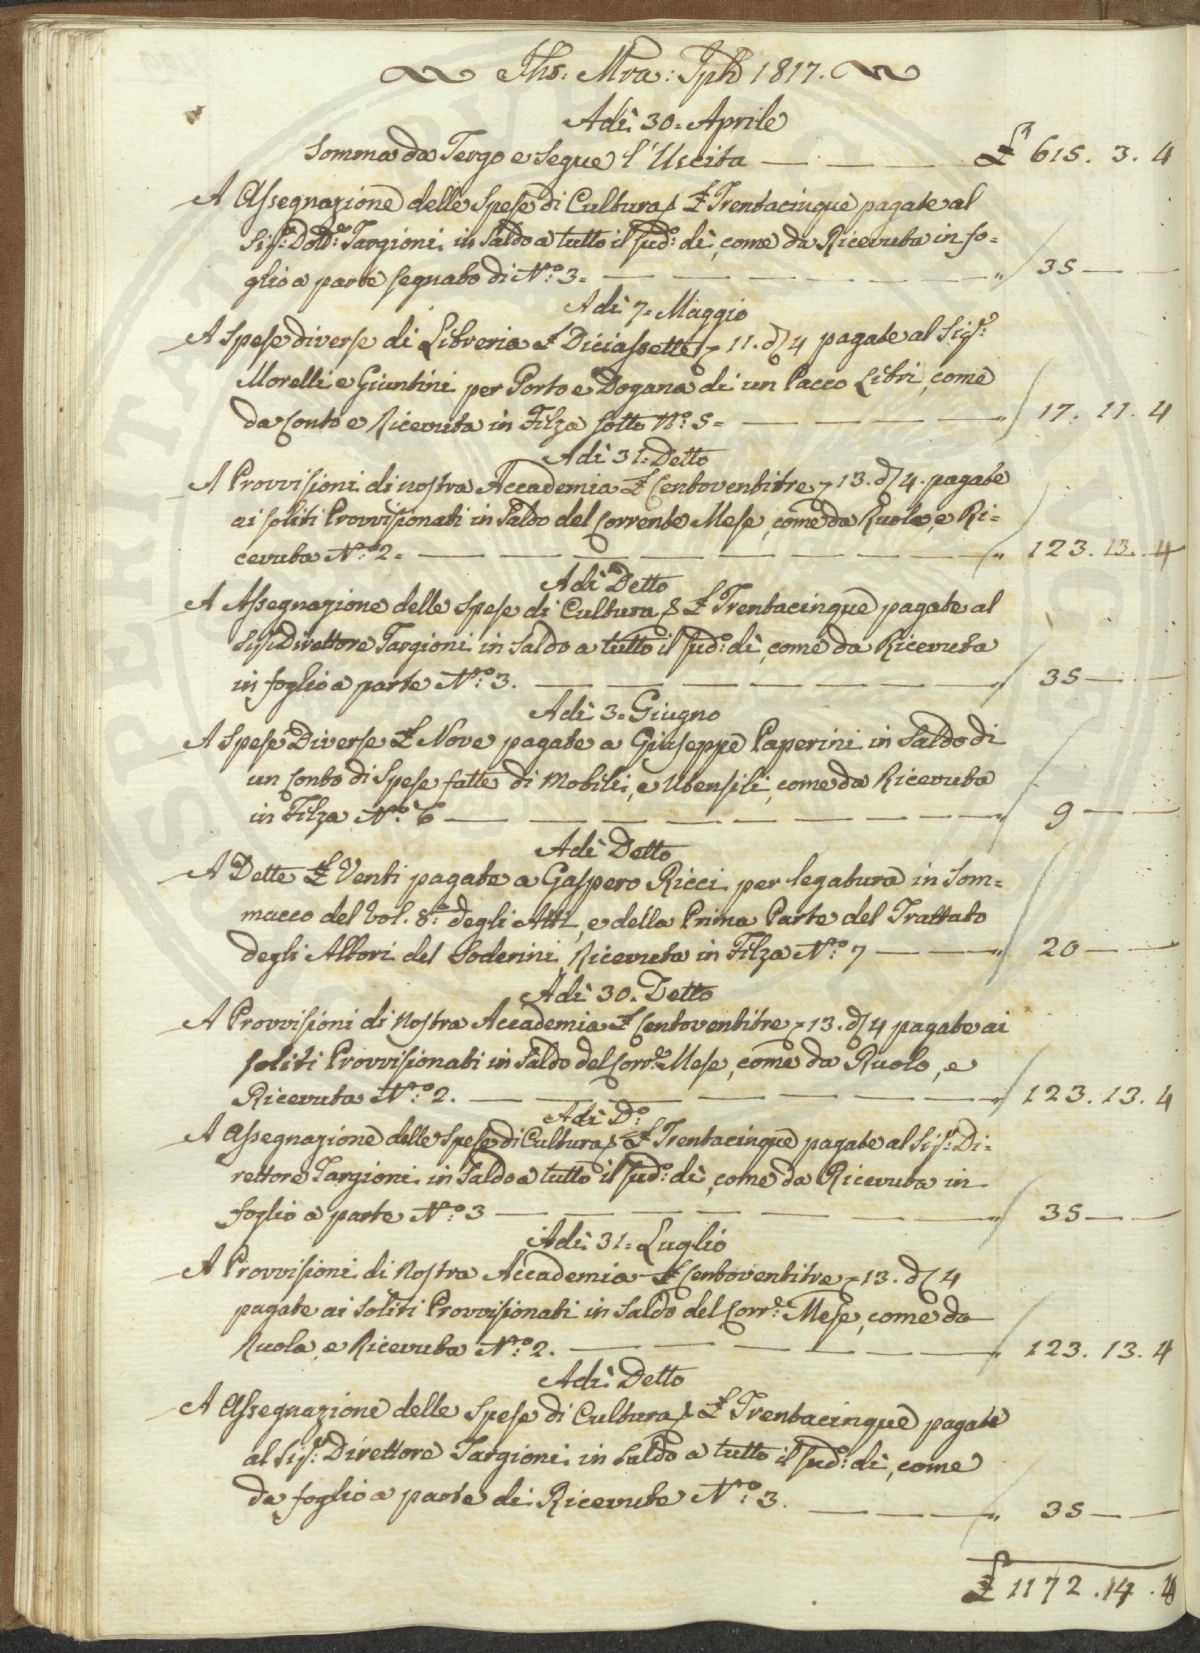 Jhs: Mra: Jph 1817.
Adì 30 = Aprile
Somma da Tergo e segue l'Uscita — — — £ 615. 3. 4
A Assegnazione delle Spese di Cultura £ Trentacinque pagate al
Sigr. Dottr. Targioni in Saldo a tutto il sudo: dì, come da Ricevuta in fo=
glio a parte segnato di No: 3 = — — — — — " 35 — —
Adì 7 = Maggio
A Spese diverse di Libreria £ Diciassette 11. d 4 pagate al Sigr.
Morelli e Giuntini per Porto e Dogana di un Pacco Libri, come
da Conto e Ricevuta in Filza sotto No. 5 = — — — — " 17. 11. 4
Adì 31 = Detto
A Provvisioni di nostra Accademia £ Centoventitre 13. d 4. pagate
ai soliti Provvisionati in Saldo del Corrente Mese, come da Ruolo, e Ri=
cevuta No. 2 = — — — — — — " 123. 13. 4
Adì Detto
A Assegnazione delle Spese di Cultura £ Trentacinque pagate al
Sigr. Direttore Targioni in Saldo a tutto il sudo: dì, come da Ricevuta
in foglio a parte No: 3. — — — — — " 35 — —
Adì 3 = Giugno
A Spese Diverse £ Nove pagate a Giuseppe Paperini in Saldo di
un Conto di Spese fatte di Mobili, e Utensili, come da Ricevuta
in Filza No: 6 — — — — — " 9 — —
Adì Detto
A Dette £ Venti pagate a Gaspero Ricci per legatura in Som=
macco del Vol. 8o. degli Atti, e della Prima Parte del Trattato
degli Alberi del Soderini, Ricevuta in Filza No: 7 — — " 20 — —
Adì 30. Detto
A Provvisioni di Nostra Accademia £ Centoventitre 13. d 4 pagate ai
soliti Provvisionati in Saldo del Corre. Mese, come da Ruolo, e
Ricevuta No: 2. — — — — — " 123. 13. 4
Adì Do:
A Assegnazione delle Spese di Cultura £ Trentacinque pagate al Sigr. Di=
rettore Targioni in Saldo a tutto il sudo: dì, come da Ricevuta in
foglio a parte No: 3 — — — — — " 35 — —
Adì 31 = Luglio
A Provvisioni di Nostra Accademia £ Centoventitre 13. d 4
pagate ai Soliti Provvisionati in Saldo del Corre: Mese, come da
Ruolo, e Ricevuta No: 2. — — — — — " 123. 13. 4
Adì Detto
A Assegnazione delle Spese di Cultura £ Trentacinque pagate
al Sigr. Direttore Targioni in Saldo a tutto il sudo: dì, come
da foglio a parte di Ricevute No: 3. — — — " 35 — —
£ 1172. 14. 4